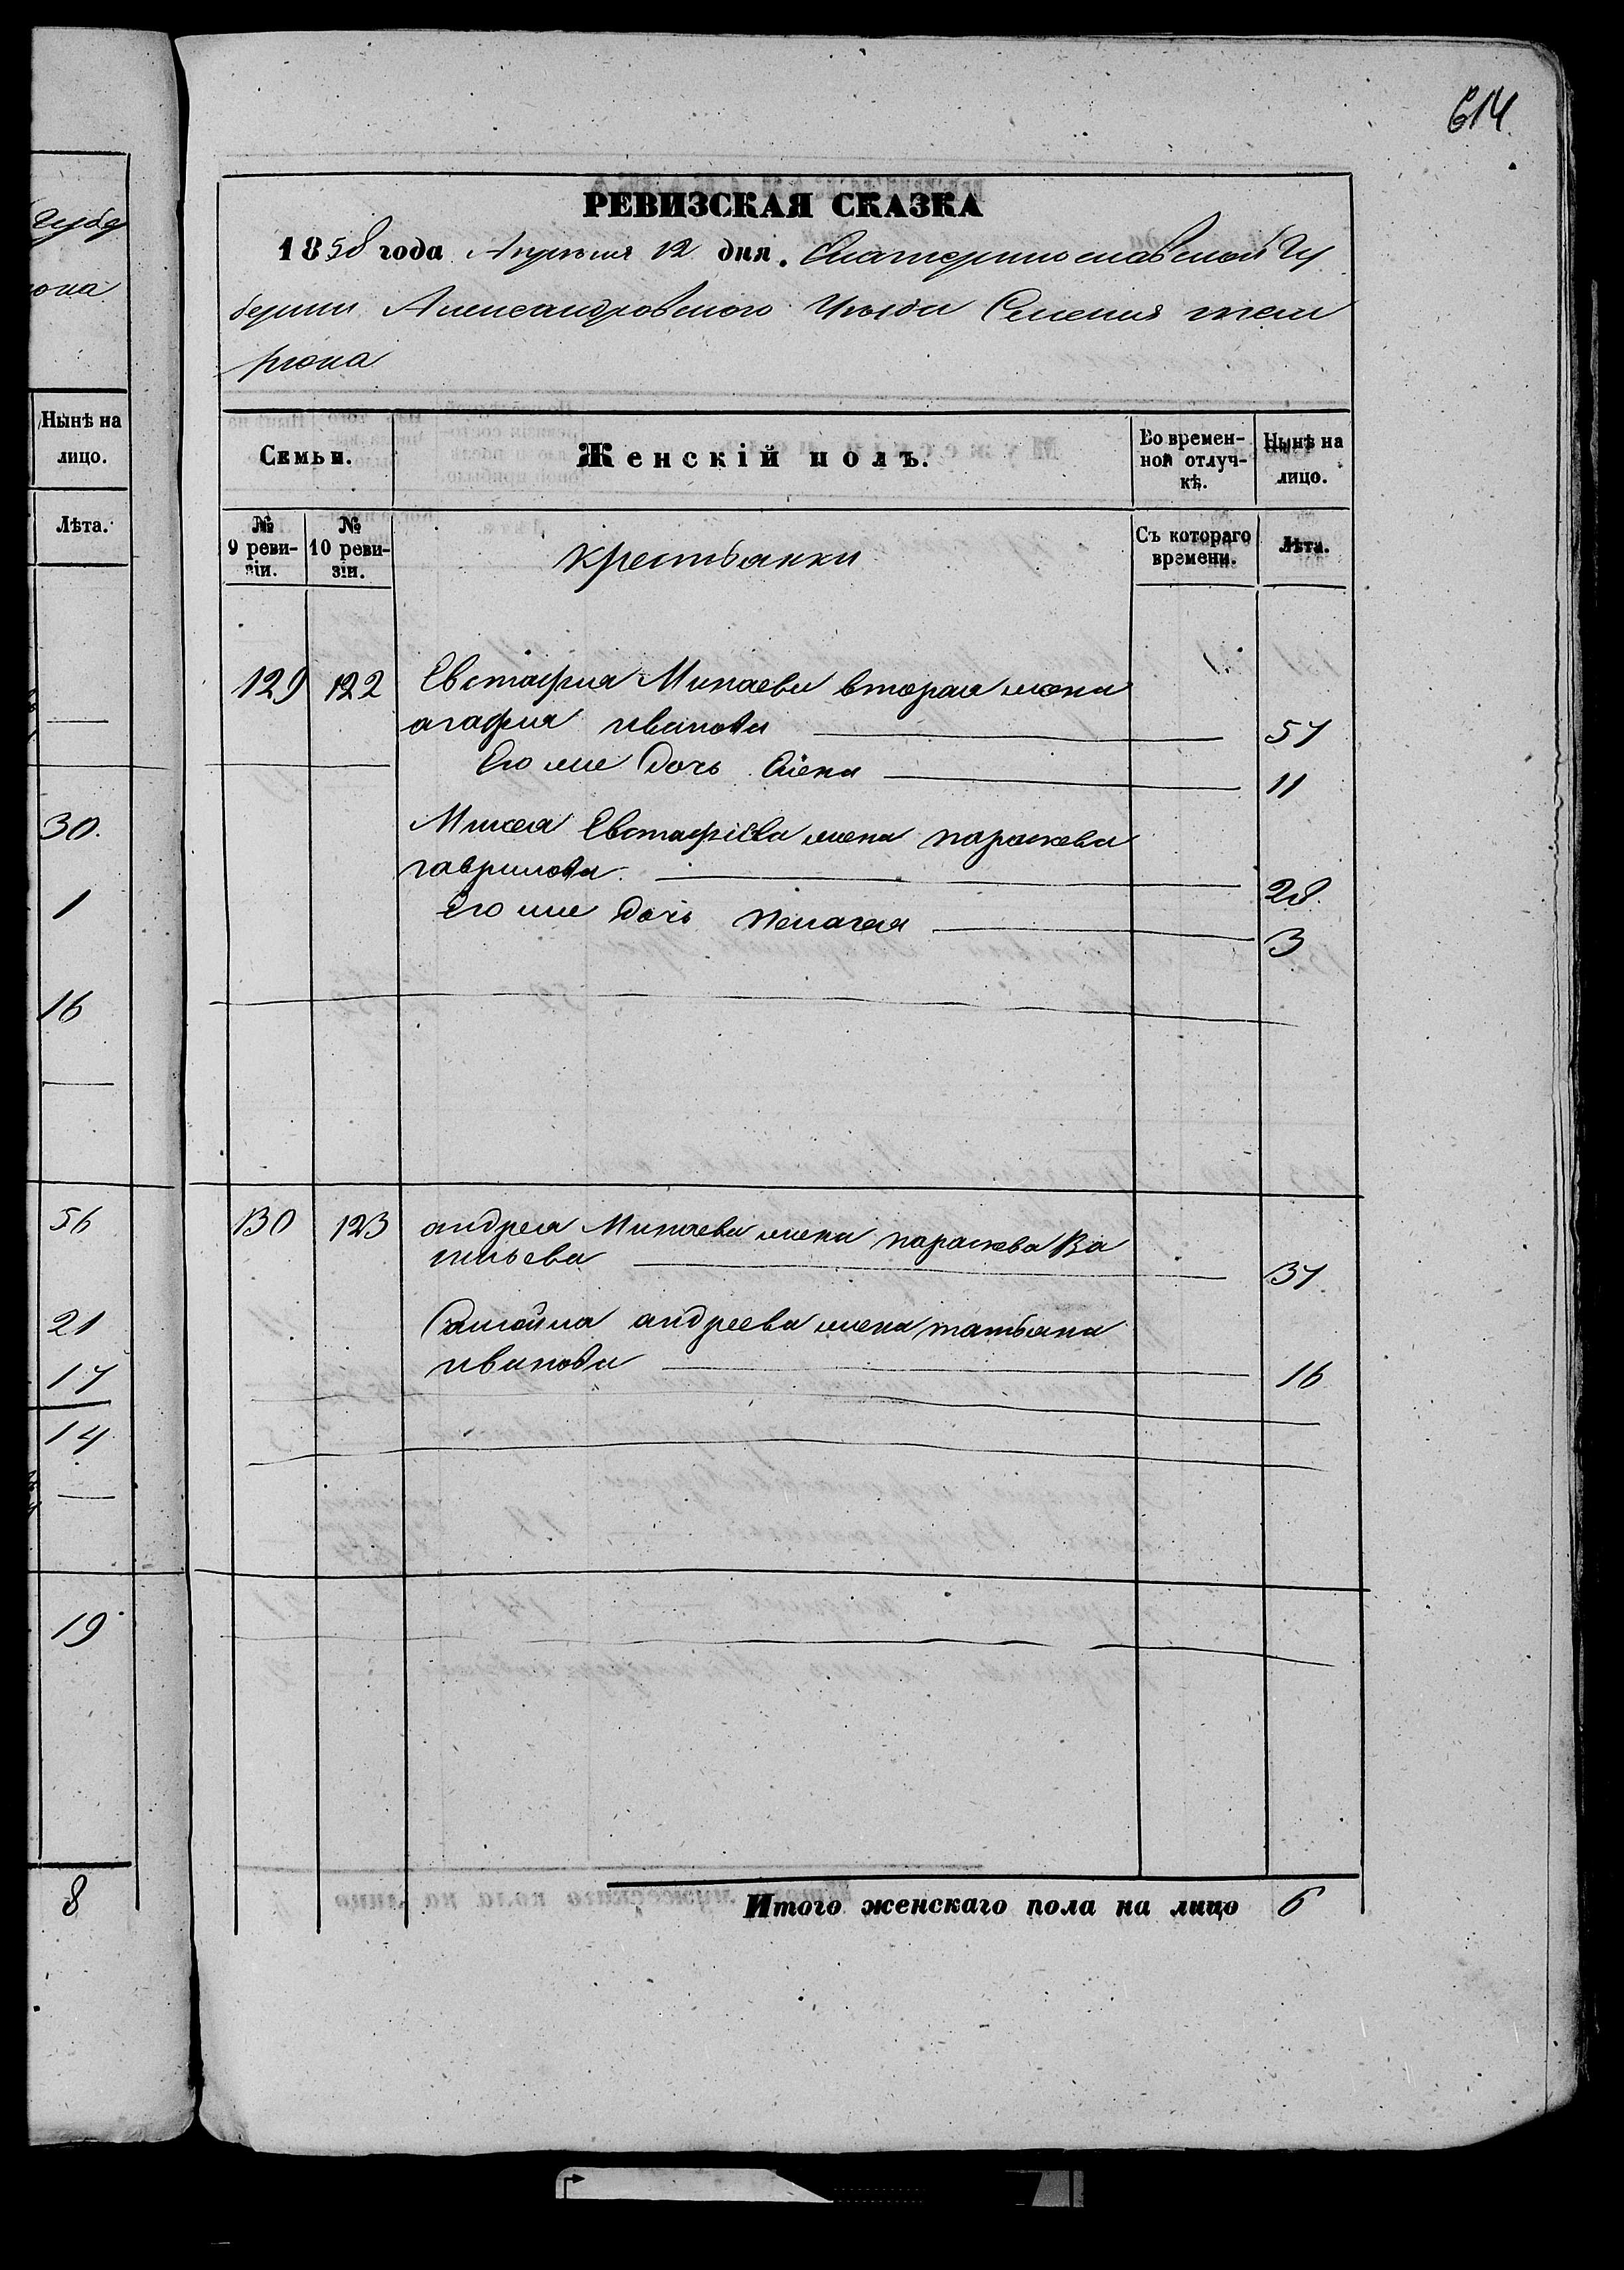 614
РЕВИЗСКАЯ СКАЗКА
1858 года Апреля 12 дня. Екатеринославской Гу
бернии Александровского Уезда Селения тем
рюка
Семьи.
Женскій полъ.
Во времен-
ной отлуч-
кѣ.
Нынѣ на
лицо.
№
9 реви-
зіи.
№
10 реви-
зіи.
крестьянки
Съ котораго
времени.
Лѣта.
129 122 Евстафия Минаева вторая жена
агафия иванова 57
Его же дочь Елена 11
Михея Евстафіева жена параскева
гаврилова 28
Его же дочь пелагея 3
130 123 андрея Минаева жена параскева Ва
сильева 37
андреева жена татьяна
иванова 16
Итого женскаго пола на лицо 6
Губе
рюка
Нынѣ на
лицо.
Лѣта.
30.
1
16
56
21
17
14
19
8